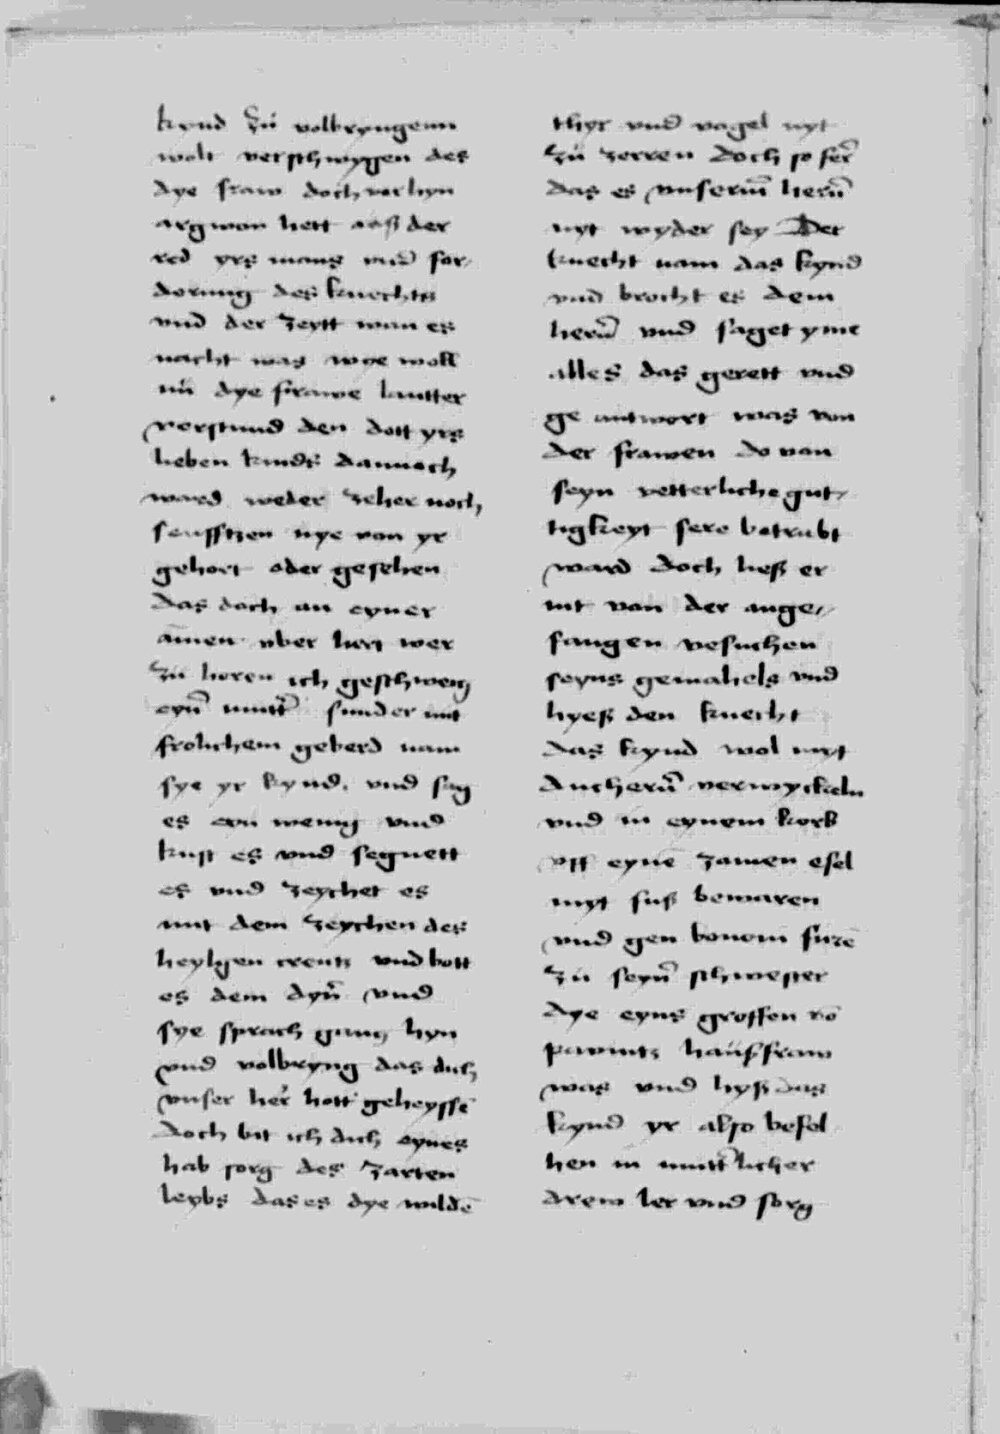 kynd zů volbryngenn
wolt verschwygen des
dye fraw doch vor hyn
argwon hett auß der
red yrs mans und for,
derung des knechts
vnd der zeytt wan es
nacht was wye woll
nů dye frawe lautter
verstund den dott yrs
lieben kinds dannoch
ward weder zeher noch
seufftzen nye von yr
gehort oder gesehen
das doch an eyner
amen vber hert wer
zů horen ich geschweig
eyn̄ mutt̄ sunder mit
frolichem geberd nam
sye yr kynd. vnd sag
es eyn wenig vnd
kust es vnd segnett
es vnd zeychet es
mit dem zeychen des
heylgen creutz vnd bott
es dem dyn̄ vnd
sye sprach gang hyn
vnd volbryng das dich
vnser her̄ hott geheyssē
doch bit ich dich eynes
hab sorg des zarten
leybs das es dye wildē
thyr vnd vogel nyt
zů zerren doch so fer̄
das es vnserm̄ hern̄
nyt wyder sey Der
knecht nam das kynd
vnd brocht es dem
hern̄ vnd saget yme
alles das gerett vnd
ge antwort was von
der frawen do von
seyn vetterliche gut,
tigkeyt sere betrubt
ward doch ließ er
nit von der ange,
fangen vesuchen
seyns gemahels vnd
hyeß den knecht
das kynd wol myt
duchern̄ verwyckeln
vnd in eynem korb
vff eynē zamen esel
myt fuß bewaren
vnd gen bonom furē
zů seyn̄ schwester
dye eyns grossen vō
pavints haußfraw
was vnd hyß das
kynd yr also befel
hen in mutt̄licher
drew ler vnd sorg